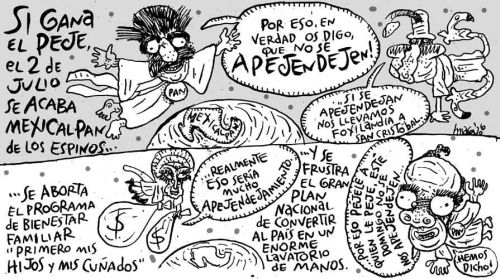 SI GANA
EL PEJE,
EL 2 DE
JULIO
SE ACABA
MEXICALPAN
DE LOS ESPINOS...
PAN
MEXICALPAN
POR ESO, EN
VERDAD OS DIGO,
QUE NO SE
APEJENDEJEN!
SI SE
APEJENDEJAN
NOS LLEVAMOS
FOXILANDIA A
SAN CRISTOBAL.
PAN
...SE ABORTA
EL PROGRAMA
DE BIENESTAR
FAMILIAR
"PRIMERO MIS
HIJOS Y MIS CUÑADOS"
$
$
REALMENTE
ESO SERIA
MUCHO
APEJENDEJAMIENTO.
...Y SE
FRUSTRA
EL GRAN
PLAN
NACIONAL
DE CONVERTIR
AL PAIS EN UN
ENORME
LAVATORIO
DE MANOS.
POR ESO PEJELE A
QUIEN LE PEJE, ESTE
NO SE
APEJENDEJEN.
PAN
¡HEMOS
DICHO!